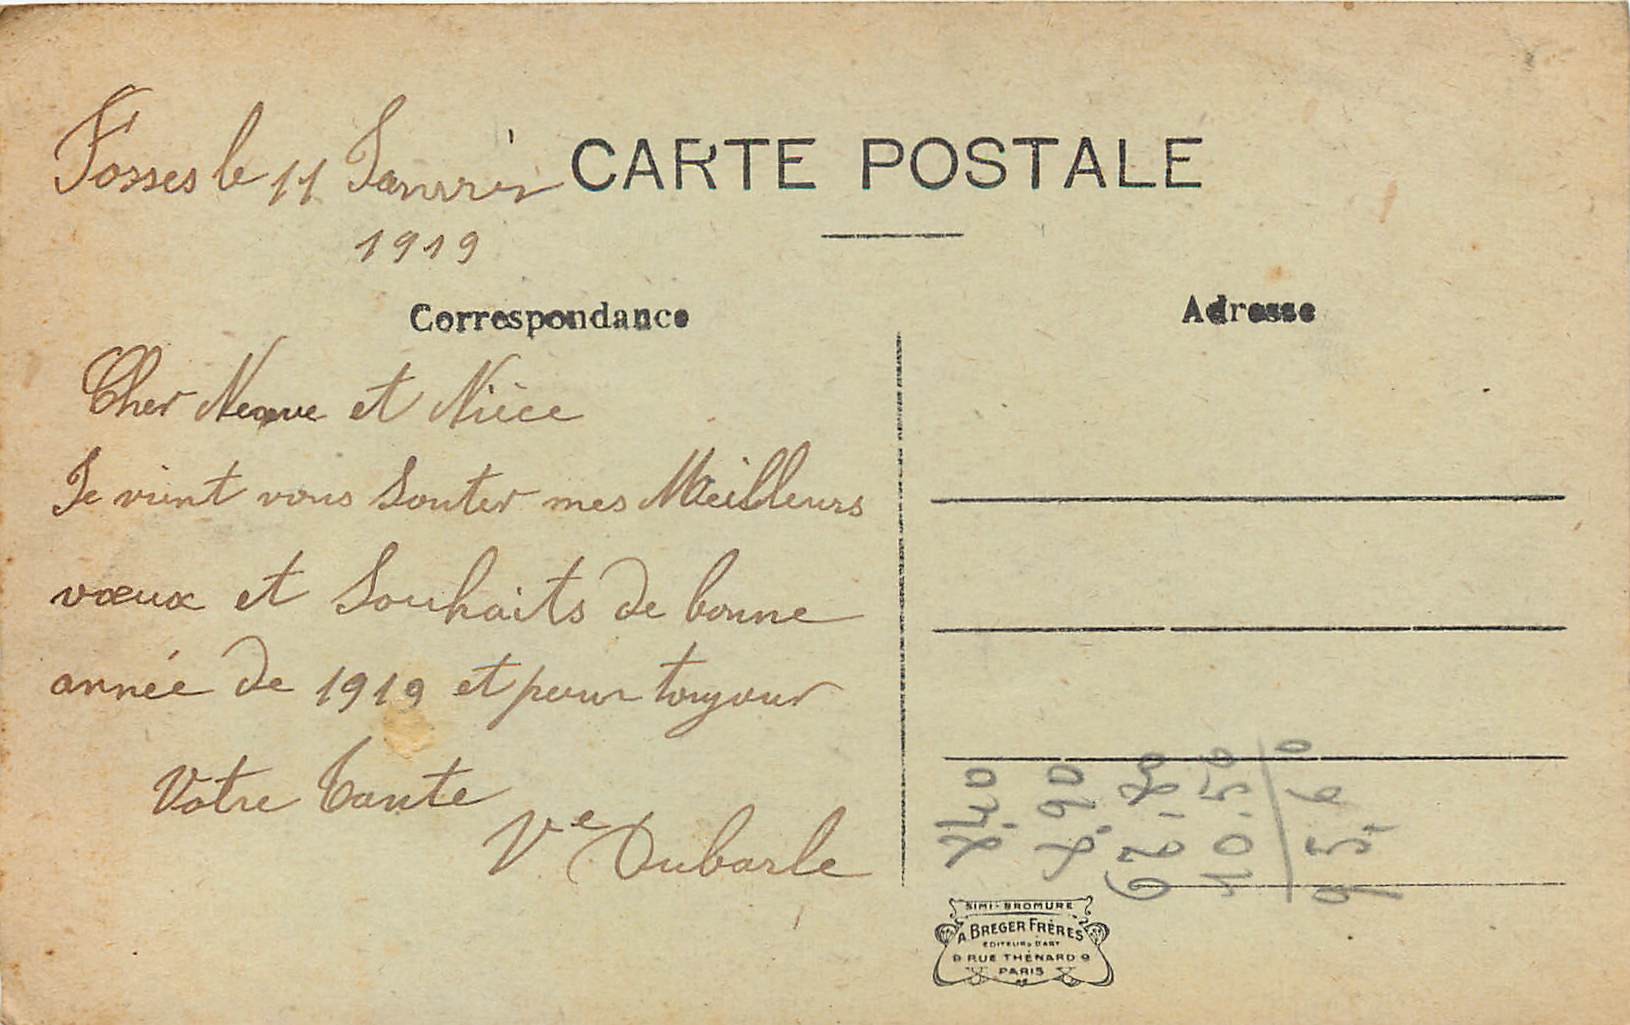 Fosses le 11 Janvrier
1919
CARTE POSTALE
Correspondance
Cher Neveue et Nièce
Je vient vous Souter mes Meilleurs
vœux et Souhaits de bonne
année de 1919 et pour toujour
Votre Tante
Ve Dubarle
Adresse
SIMI-BROMURE
A. BREGER FRÈRES
EDITEURS D'ART
9 RUE THÉNARD 9
PARIS